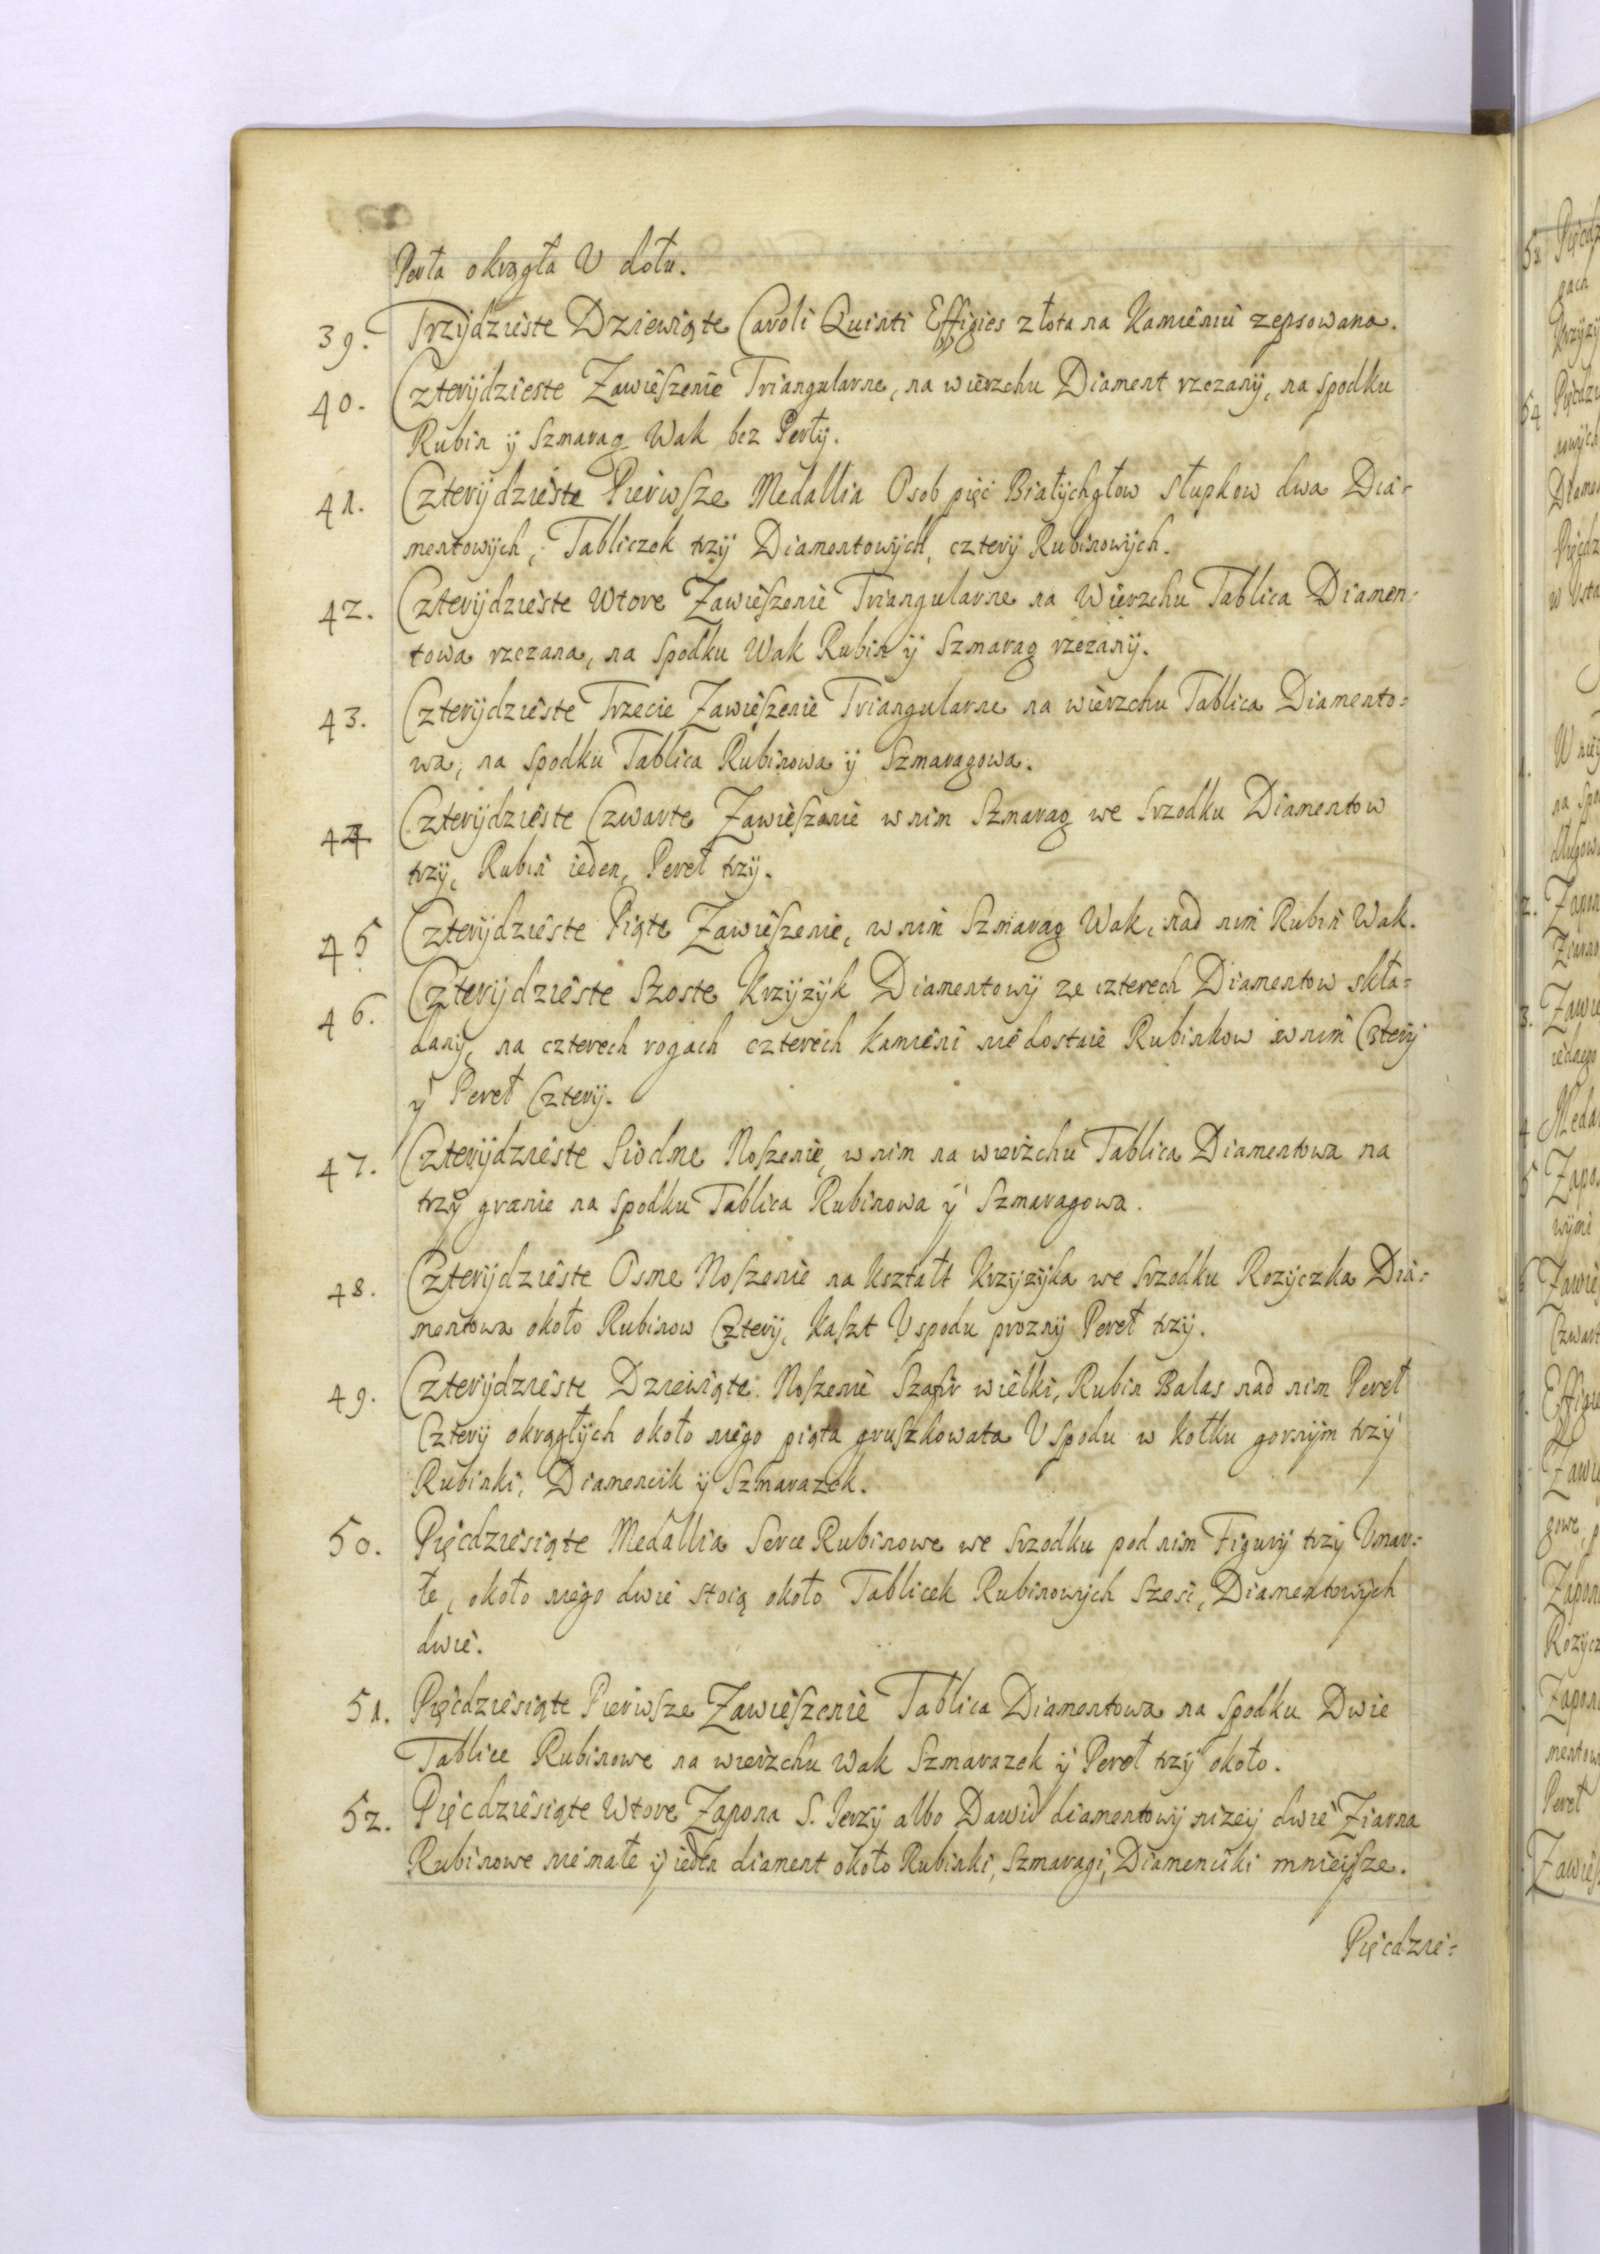 Perła okrągła V dołu.
39. Trzijdzieste Dziewiąte Caroli Quinti Effigies złota na Kamieniu zepsowana.
40. Czterijdzieste Zawieszenie Triangularne, na wierzchu Diament rzezanÿ, na spodku
Rubin ÿ Szmarag Wak bez Perłÿ.
41. Czterÿdzieste Pierwsze Medallia Osob pięć Białÿchgłow słupkow dwa Dia=
mentowÿch, Tabliczek trzÿ Diamentowÿch, czterÿ Rubinowÿch.
42. Czterÿdzieste Wtore Zawieszenie Triangularne na Wierzchu Tablica Diamen=
towa rzezana, na spodku Wak Rubin ÿ Szmarag rzezanÿ.
43. Czterÿdzieste Trzecie Zawieszenie Triangularne na wierzchu Tablica Diamento=
wa, na spodku Tablica Rubinowa ÿ Szmaragowa.
44 Czterÿdzieste Czwarte Zawieszenie w nim Szmarag we srzodku Diamentow
trzÿ, Rubin ieden, Pereł trzÿ.
45 Czterÿdzieste Piąte Zawieszenie, w nim Szmarag Wak, nad nim Rubin Wak.
46. Czterÿdzieste Szoste Krzÿzÿk Diamentowÿ ze czterech Diamentow skła=
danÿ, na czterech rogach czterech kamieni nie dostaie Rubinkow w nim Czterÿ
ÿ Pereł Czterÿ.
47. Czterÿdzieste Siodme Noszenie, w nim na wierzchu Tablica Diamentowa na
trzÿ granie na spodku Tablica Rubinowa ÿ Szmaragowa.
48. Czterÿdzieste Osme Noszenie na kształt Krzÿzÿka we srzodku Rozÿczka Dia=
mentowa około Rubinow Czterÿ, Kaszt V spodu proznÿ Pereł trzÿ.
49. Czterÿdzieste Dziewiąte Noszenie Szafir wielki, Rubin Balas nad nim Pereł
Czterÿ okrągłÿch około niego piąta gruszkowata V spodu w kołku gornÿm trzÿ
Rubinki, Diamencik ÿ Szmarazek.
50. Pięcdziesiąte Medallia Serce Rubinowe we srzodku pod nim Figurÿ trzÿ Vmar=
łe, około niego dwie stoią około Tablicek Rubinowÿch szesi, Diamentowÿch
dwie.
51. Pięcdziesiąte Pierwsze Zawieszenie Tablica Diamentowa na spodku Dwie
Tablice Rubinowe na wierzchu Wak Szmarazek ÿ Pereł trzÿ około.
52. Pięcdziesiąte Wtore Zapona S. Jerzÿ albo Dawid diamentowÿ nizeÿ dwie Ziarna
Rubinowe niemałe ÿ ieden diament około Rubinki, Szmaragi, Diamenciki mnieÿsze.
Pięcdzie=